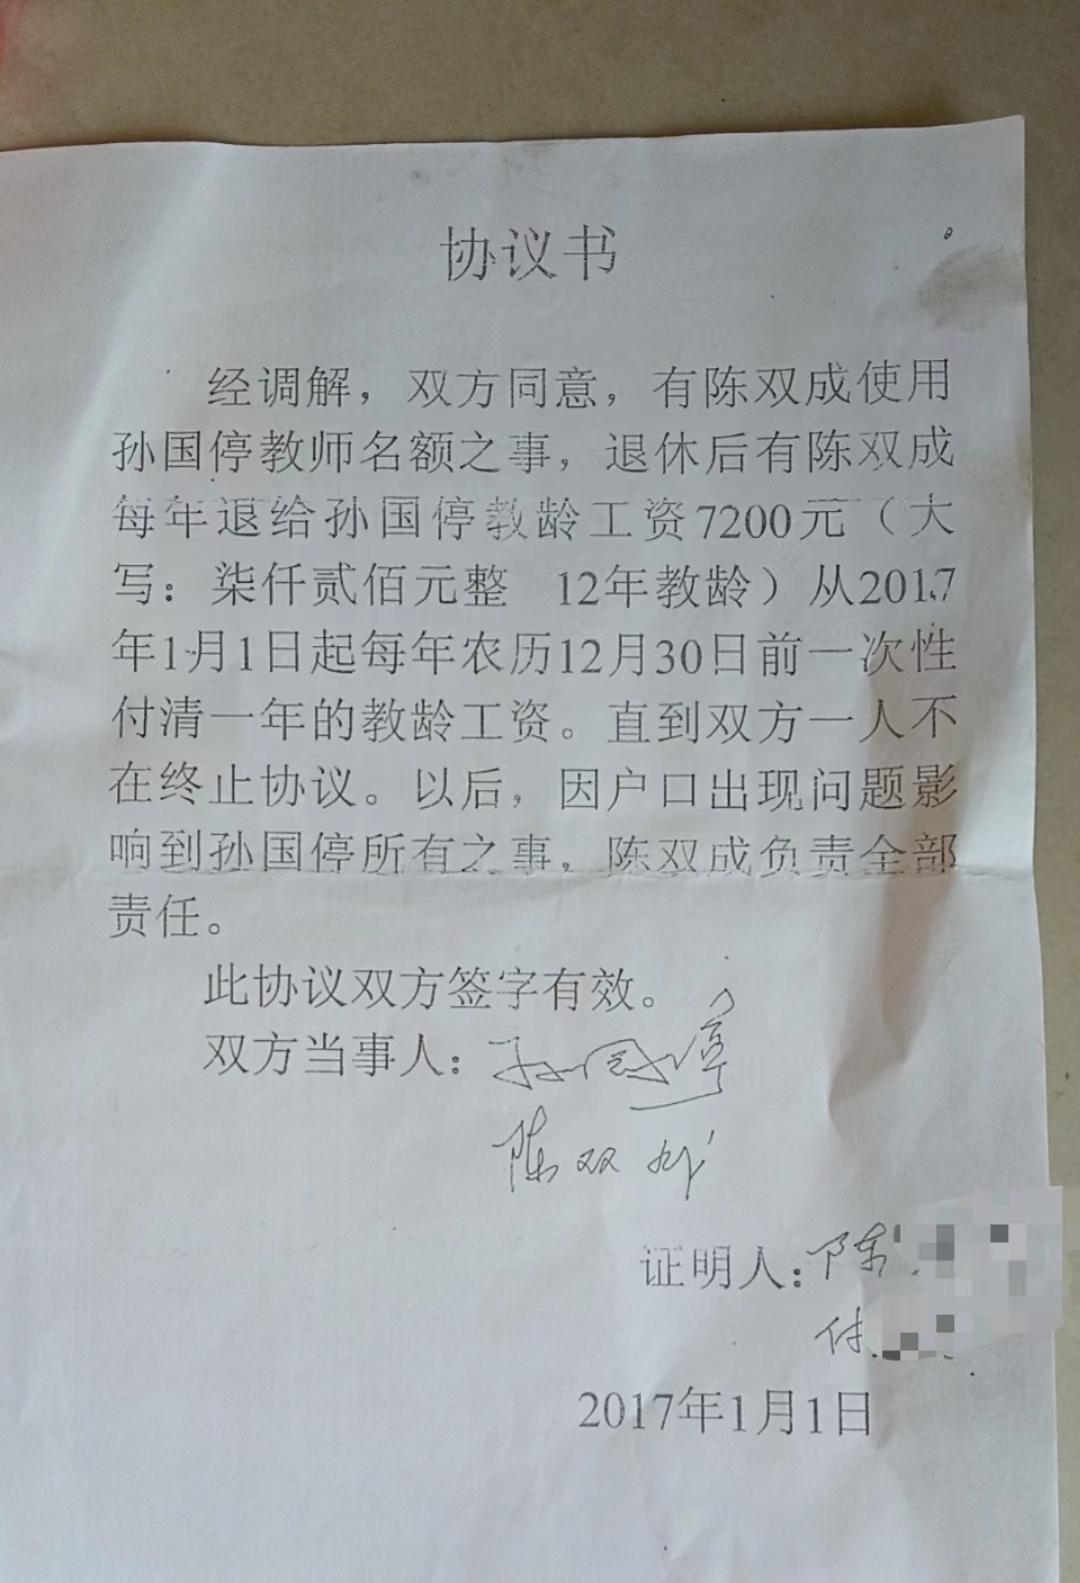 协议书
经调解，双方同意，有陈双成使用
孙国停教师名额之事，退休后有陈双成
每年退给孙国停教龄工资7200元（大
写：柒仟贰佰元整 12年教龄）从2017
年1月1日起每年农历12月30日前一次性
付清一年的教龄工资。直到双方一人不
在终止协议。以后，因户口出现问题影
响到孙国停所有之事，陈双成负责全部
责任。
此协议双方签字有效。
双方当事人：孙国停
陈双成
证明人：陈
付
2017年1月1日